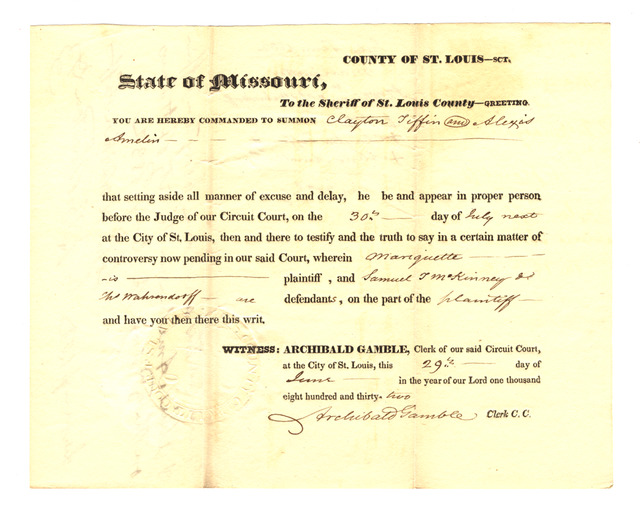 COUNTY OF ST. LOUIS—SCT.
State of Missouri,
To the Sheriff of St. Louis County—GREETING.
YOU ARE HEREBY COMMANDED TO SUMMON Clayton Tiffin and Alexis
Amelin
that setting aside all manner of excuse and delay, he be and appear in proper person
before the Judge of our Circuit Court, on the 30th day of July next
at the City of St. Louis, then and there to testify and the truth to say in a certain matter of
controversy now pending in our said Court, wherein Mariguette
is plaintiff, and Samuel T McKinney &
Wahrendorff are defendants, on the part of the plaintiff
and have you then there this writ.
WITNESS: ARCHIBALD GAMBLE, Clerk of our said Circuit Court,
at the City of St. Louis, this 29th day of
June in the year of our Lord one thousand
eight hundred and thirty-two
Archibald Gamble Clerk C. C.